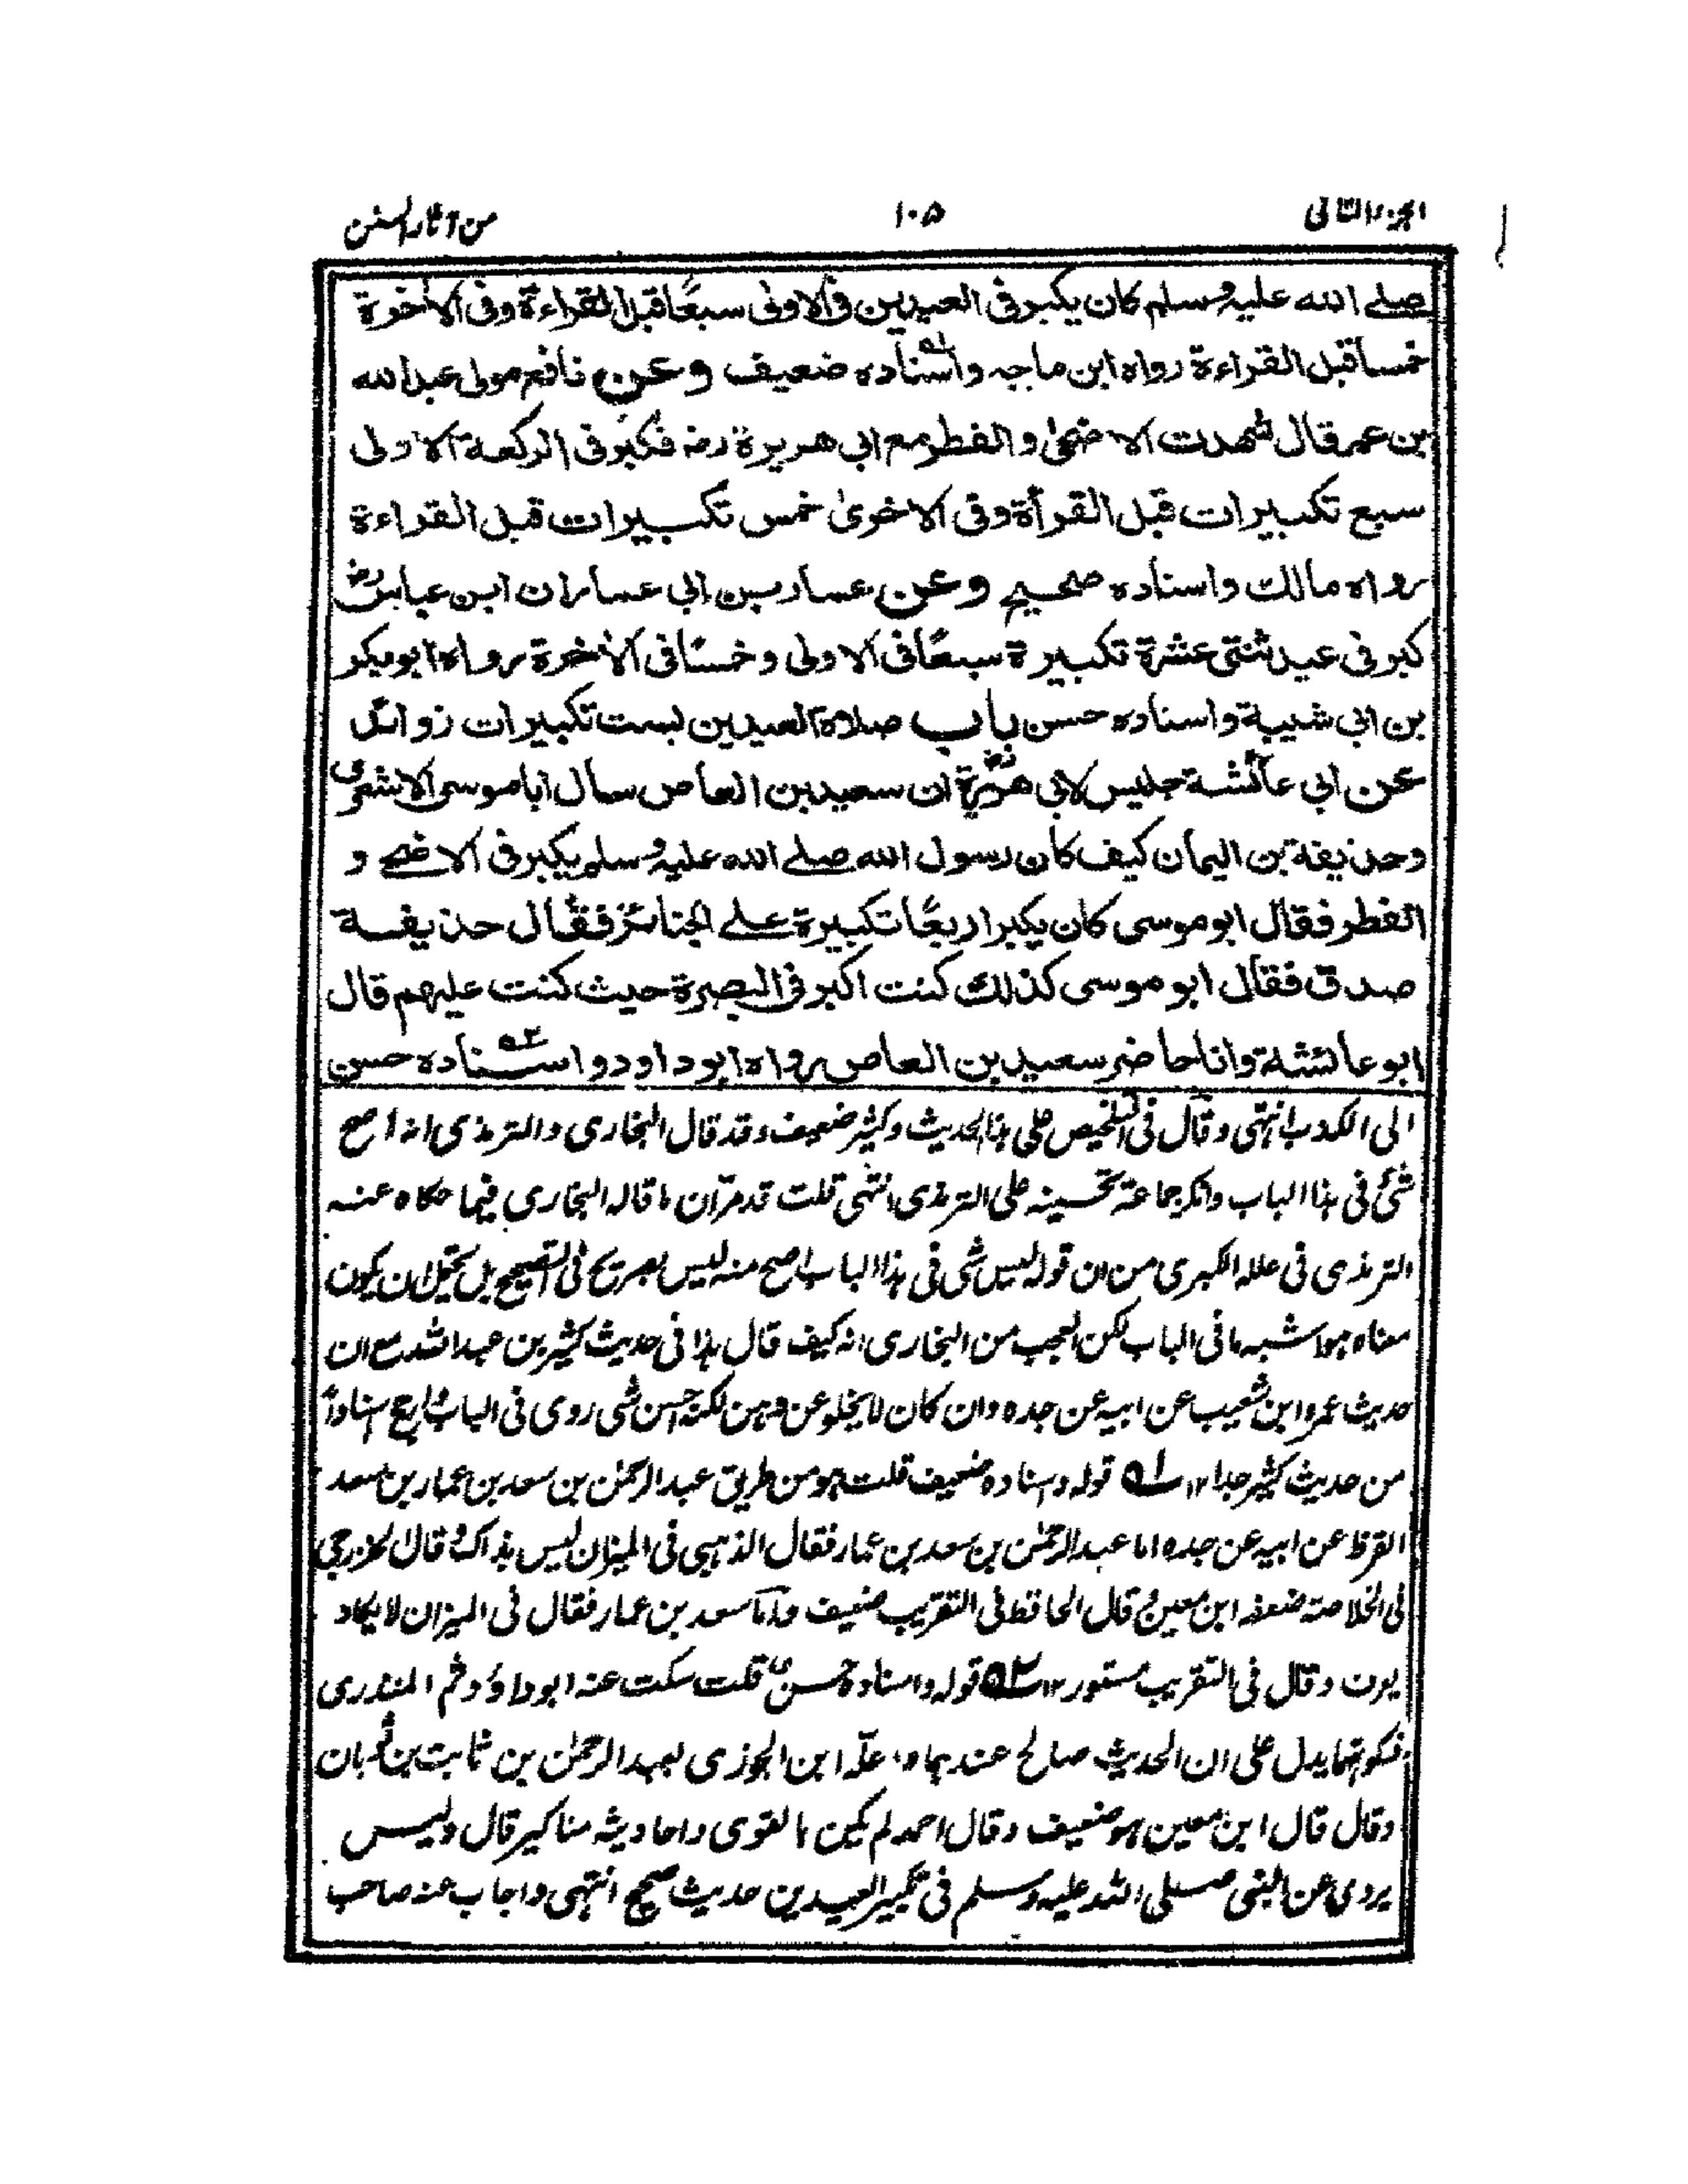 الجزء الثانی
۱۰۵
من آثار السنن
صلے الله علیہ وسلم کان یکبر فی العیدین فی الاولی سبعًا قبل القراءة وفی الاٰخرة
خمسا قبل القراءة رواہ ابن ماجہ واسنادہ ضعیف وعن نافع مولی عبد الله
بن عمر قال شھدت الاضحیٰ والفطر مع ابی ھریرة رضہ فکبر فی الرکعة الاولی
سبع تکبیرات قبل القرأة وفی الاخریٰ خمس تکبیرات قبل القراءة
رواہ مالک واسنادہ صحیح وعن عمار بن ابی عمار ان ابن عباس رضہ
کبر فی عید ثنتی عشرة تکبیرة سبعًا فی الاولی وخمسًا فی الاٰخرة رواہ ابوبکر
بن ابی شیبة واسنادہ حسن باب صلاة العیدین بست تکبیرات زوائد
عن ابی عائشة جلیس لابی ھریرة رضہ ان سعید بن العاص سال ابا موسی الاشعری
وحذیفة بن الیمان کیف کان رسول الله صلے الله علیہ وسلم یکبر فی الاضحے و
الفطر فقال ابو موسی کان یکبر اربعًا تکبیرة علے الجنائز فقال حذیفة
صدق فقال ابو موسی کذلک کنت اکبر فی البصرة حیث کنت علیھم قال
ابو عائشة وانا حاضر سعید بن العاص رواہ ابو داود واسنادہ حسن
الی الکذب انتہی وقال فی التلخیص علی ہذا الحدیث وکثیر ضعیف وقد قال البخاری والترمذی انہ اصح
شئ فی ہذا الباب وانکر جماعة تحسینہ علی الترمذی انتہی قلت قد مرّ ان ما قالہ البخاری فیما حکاہ عنہ
الترمذی فی عللہ الکبری من ان قولہ لیس شی فی ہذا الباب اصح منہ لیس بصریح فی التصحیح بل یحتمل ان یکون
معناہ ہو اشبہ ما فی الباب لکن العجب من البخاری انہ کیف قال ہذا فی حدیث کثیر بن عبد اللہ مع ان
حدیث عمرو ابن شعیب عن ابیہ عن جدہ وان کان لا یخلو عن وہن لکنہ احسن شی روی فی الباب وارجح اسنادًا
من حدیث کثیر جدا ۱۲ ؎۱ قولہ واسنادہ ضعیف قلت ہو من طریق عبد الرحمٰن بن سعد بن عمار بن سعد
القرظ عن ابیہ عن جدہ اما عبد الرحمٰن بن سعد بن عمار فقال الذہبی فی المیزان لیس بذاک وقال الخزرجی
فی الخلاصة ضعفہ ابن معین وقال الحافظ فی التقریب ضعیف واما سعد بن عمار فقال فی المیزان لا یکاد
یعرف وقال فی التقریب مستور ۱۲ ؎۲ قولہ واسنادہ حسن قلت سکت عنہ ابو داؤد ثم المنذری
فسکوتہما یدل علی ان الحدیث صالح عندہما واعلّہ ابن الجوزی بعبد الرحمٰن بن ثابت بن ثوبان
وقال قال ابن معین ہو ضعیف وقال احمد لم یکن بالقوی واحادیثہ مناکیر قال ولیس
یروی عن النبی صلی اللہ علیہ وسلم فی تکبیر العیدین حدیث صحیح انتہی واجاب عنہ صاحب